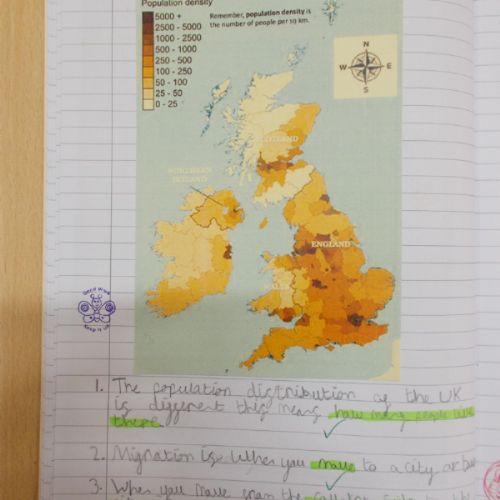 Population density
5000 +
2500 - 5000
1000 - 2500
500 - 1000
250 - 500
100 - 250
50 - 100
25 - 50
0 - 25
Remember, population density is
the number of people per sq km.
N
W E
S
SCOTLAND
NORTHERN
IRELAND
ENGLAND
WALES
Good Work
Keep it Up
1. The population distribution of the UK
is different this means how many people live
there.
2. Migration is when you move to a city or
3. When you move from the